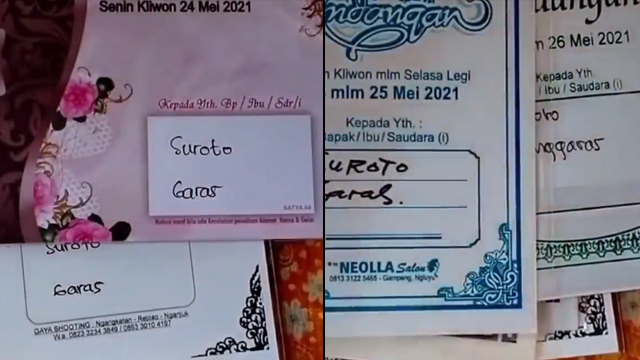 Senin Kliwon 24 Mei 2021
Kepada Yth. Bp / Ibu / Sdr/i
Suroto
Garas
SATYA.58
Suroto
Garas
GAYA SHOOTING : Ngangkatan - Rejoso - Nganjuk
W.a. 0823 3234 3849 / 0853 3010 4197
n Kliwon mlm Selasa Legi
mlm 25 Mei 2021
Kepada Yth. :
apak/Ibu/Saudara (i)
UROTO
aras.
NEOLLA Salon
0813 3122 5465 - Gampeng, Ngluyu
m 26 Mei 2021
Kepada Yth
/ Ibu / Saudara (i)
oto
nggaras